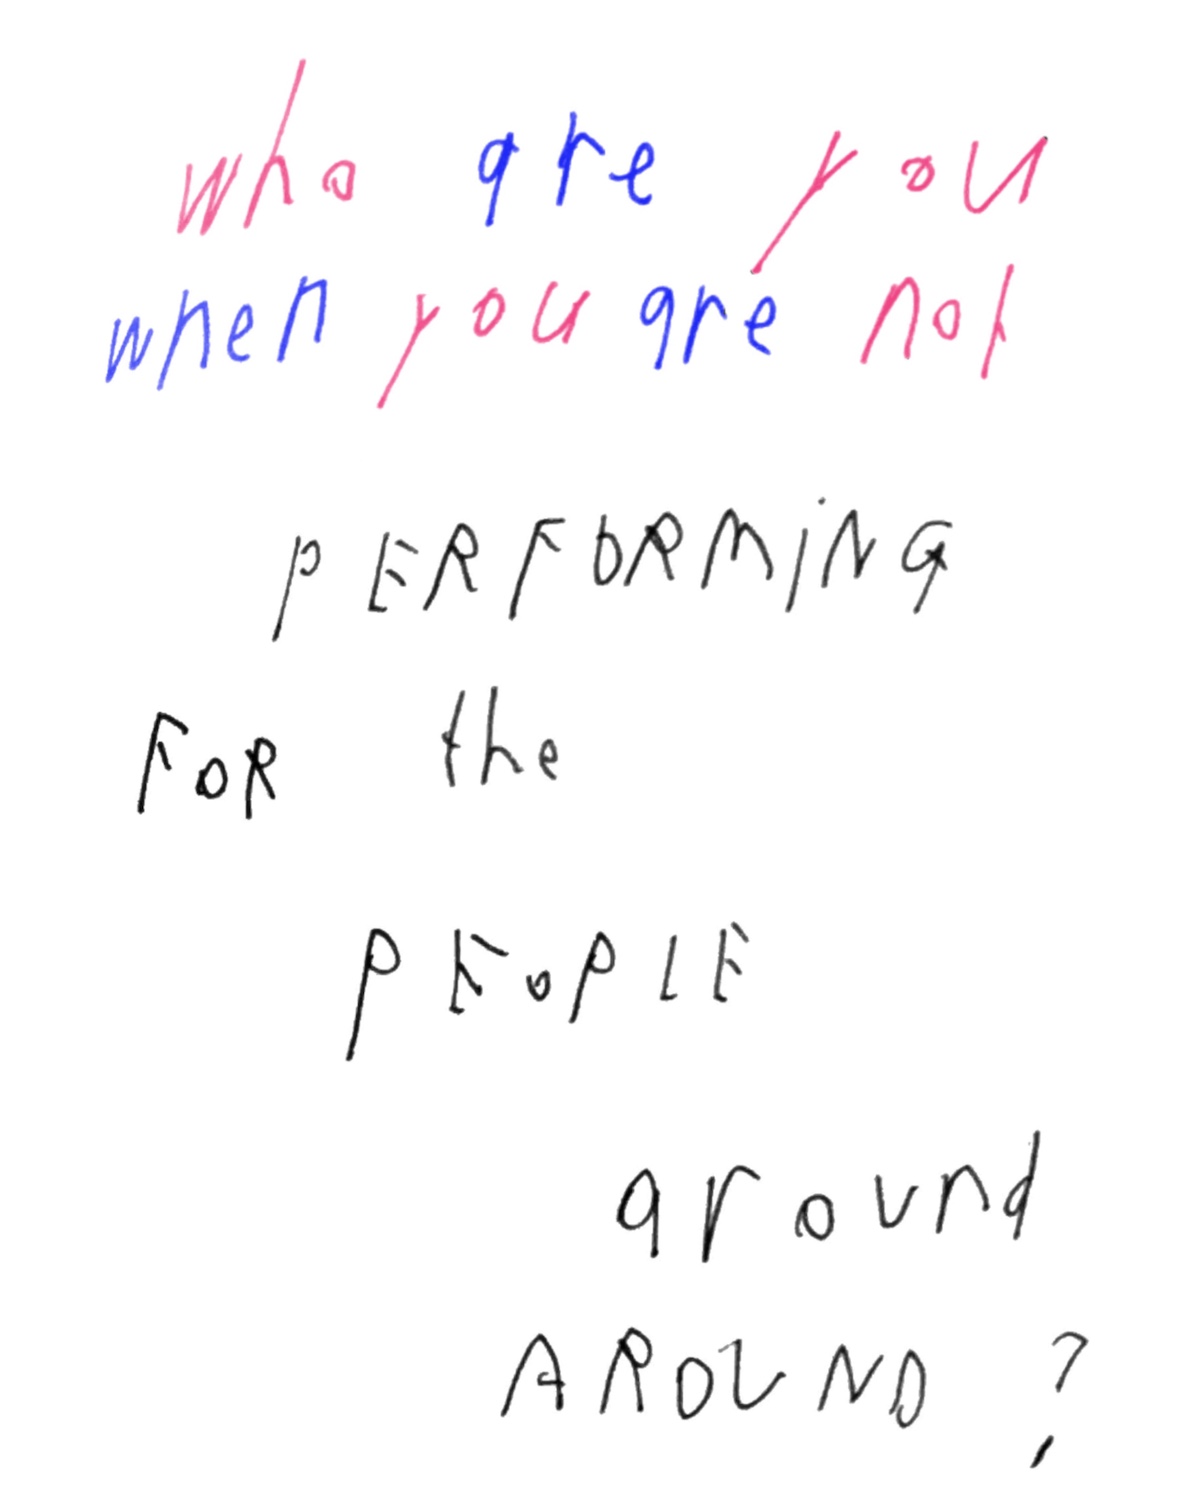 who are you
when you are not
PERFORMiNG
FOR the
PEOPLE
around
AROUND ?